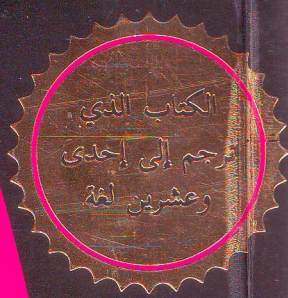 الكتاب الذي
ترجم إلى إحدى
وعشرين لغة